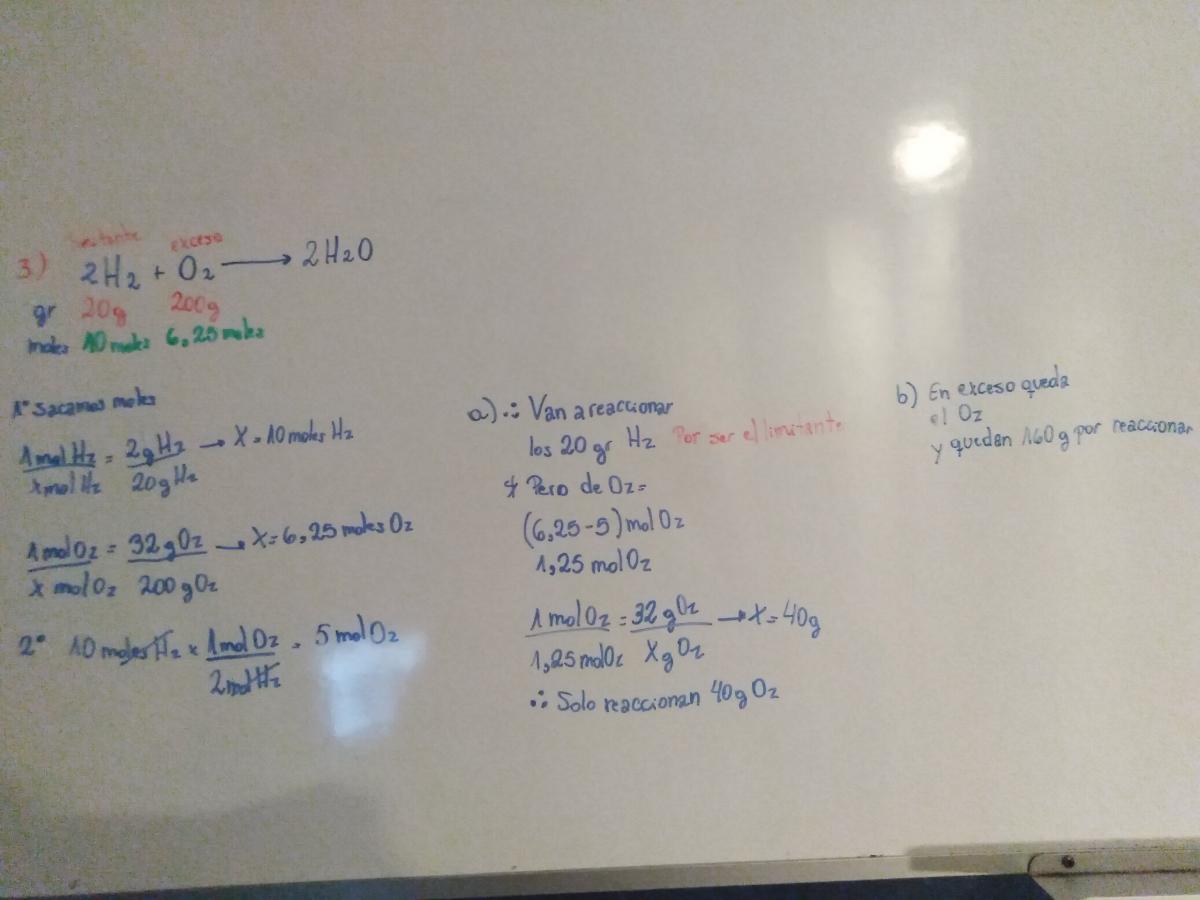 limitante exceso
3) 2H₂ + O₂ ⟶ 2H₂O
gr 20g 200g
moles 10 moles 6,25 moles
1° Sacamos moles
1 mol H₂ / x mol H₂ = 2g H₂ / 20g H₂ → X = 10 moles H₂
1 mol O₂ / x mol O₂ = 32g O₂ / 200g O₂ → X = 6,25 moles O₂
2° 10 moles H₂ × 1 mol O₂ / 2 mol H₂ = 5 mol O₂
a) ∴ Van a reaccionar
los 20 gr H₂ Por ser el limitante
Pero de O₂=
(6,25-5) mol O₂
1,25 mol O₂
1 mol O₂ / 1,25 mol O₂ = 32g O₂ / X g O₂ → X = 40g
∴ Solo reaccionan 40g O₂
b) En exceso queda
el O₂
y quedan 160g por reaccionar